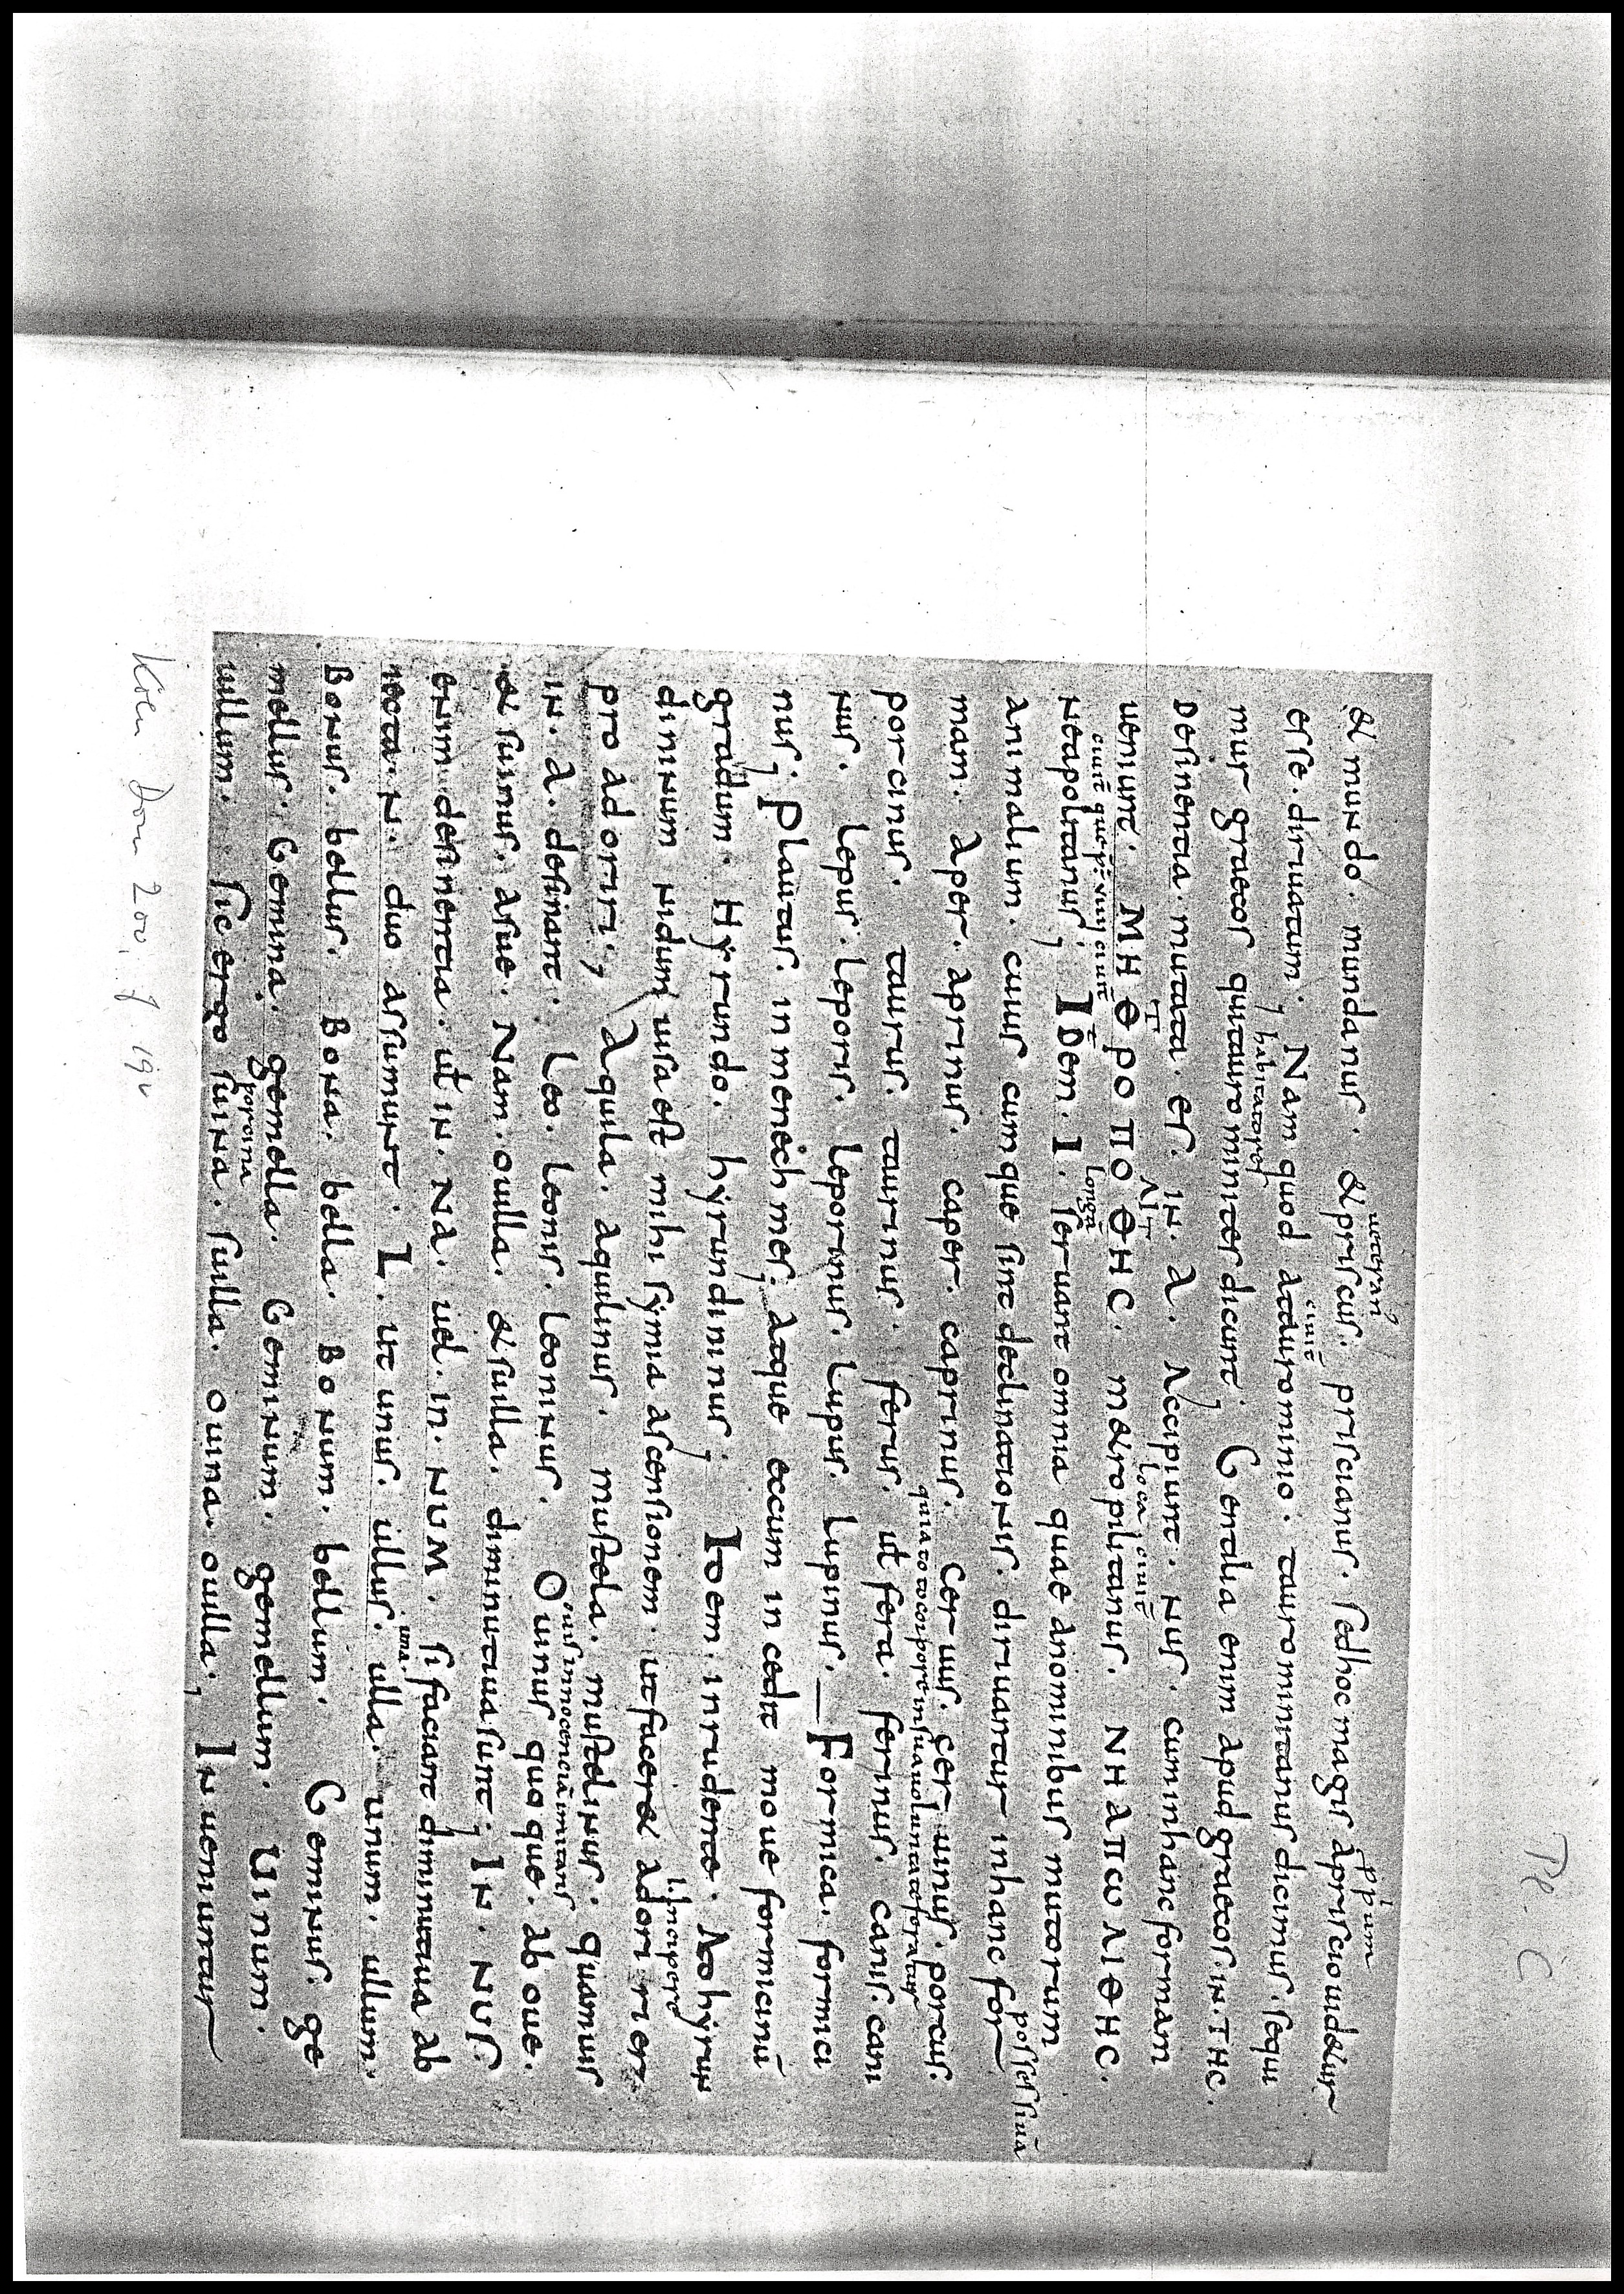 Pl. C
ueteranꝰ ppium
& mundo. mundanus. & priscus. priscianus. sed hoc magis a priscio uidetur
ciuitē
esse. diriuatum. Nam quod a tauro minio. tauro minitanus dicimus. sequi
habitatores
mur graecos qui tauro minites dicunt; Gentilia enim apud graecos in. THC.
loca ciuitē
Desinentia. mutata. es. in. a. Accipiunt. nus. cum in hanc formam
T ΛΙΤ
ueniunt. MHΘPOΠOΘHC. metropilitanus. NHAΠωΛΙΘHC.
ciuitē que longā
neapolitanus; Idem. I. seruant omnia quae a nominibus mutorum
possessiuā
animalium. cuius cumque sint declinationis. diriuantur in hanc for
mam. Aper. aprinus. caper. caprinus. ceruus. ceruinus. porcus.
quia toto corpore in sua uoluntate feratur
porcinus. taurus. taurinus. ferus. ut fera. ferinus. canis. cani
nus. lepus. leporis. leporinus. lupus. lupinus. Formica. formici
nus; Plautus. in menechmes. atque eccum in cedit moue formicinū
gradum. Hyrundo. hyrundininus; Idem. in rudente. Ad hyrun
incipere
dininum nidum uisa est mihi symia ascensionem. ut faceret adori rier.
pro adoriri; Aquila. aquilinus. mustela. mustelinus. quamuis
ouis innocenciā imitans
in. a. desinant. leo. leonis. leoninus. Ouinus quoque. ab oue.
& suinus. a sue. Nam. ouilla. & suilla. diminutiua sunt; In. nus.
enim. desinentia. ut in. na. uel. in. num. si faciant diminutiua ab
una.
iecta. n. duo assumunt. L. ut unus. ullus. ulla. unum. ullum.
Bonus. bellus. Bona. bella. Bonum. bellum. Geminus. ge
mellus. Gemina. gemella. Geminum. gemellum. Uinum.
porcina
uillum. sic ergo suina. suilla. ouina. ouilla; Inueniuntur